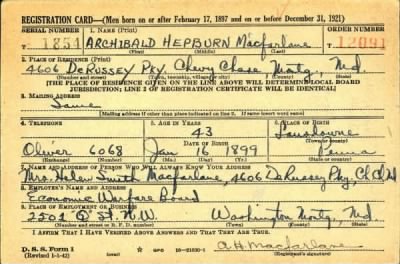 REGISTRATION CARD—(Men born on or after February 17, 1897 and on or before December 31, 1921)
SERIAL NUMBER 1. NAME (Print) ORDER NUMBER
1854 ARCHIBALD HEPBURN Macfarlane 12091
(First) (Middle) (Last)
2. PLACE OF RESIDENCE (Print)
4606 DeRussey Pky. Chevy Chase Montg. Md.
(Number and street) (Town, township, village, or city) (County) (State)
[THE PLACE OF RESIDENCE GIVEN ON THE LINE ABOVE WILL DETERMINE LOCAL BOARD
JURISDICTION; LINE 2 OF REGISTRATION CERTIFICATE WILL BE IDENTICAL]
3. MAILING ADDRESS
Same
[Mailing address if other than place indicated on line 2. If same insert word same]
4. TELEPHONE 5. AGE IN YEARS 6. PLACE OF BIRTH
43 Lansdowne
DATE OF BIRTH (Town or county)
Oliver 6068 Jan 16 1899 Penna
(Exchange) (Number) (Mo.) (Day) (Yr.) (State or country)
7. NAME AND ADDRESS OF PERSON WHO WILL ALWAYS KNOW YOUR ADDRESS
Mrs. Helen Smith Macfarlane, 4606 DeRussey Pky, Ch Ch Md
8. EMPLOYER'S NAME AND ADDRESS
Economic Warfare Board
9. PLACE OF EMPLOYMENT OR BUSINESS
2501 Q St. N.W. Washington Montg, Md.
(Number and street or R. F. D. number) (Town) (County) (State)
I AFFIRM THAT I HAVE VERIFIED ABOVE ANSWERS AND THAT THEY ARE TRUE.
D. S. S. Form 1 GPO 16—21630-1 A.H. Macfarlane
(Revised 1-1-42) (over) (Registrant's signature)